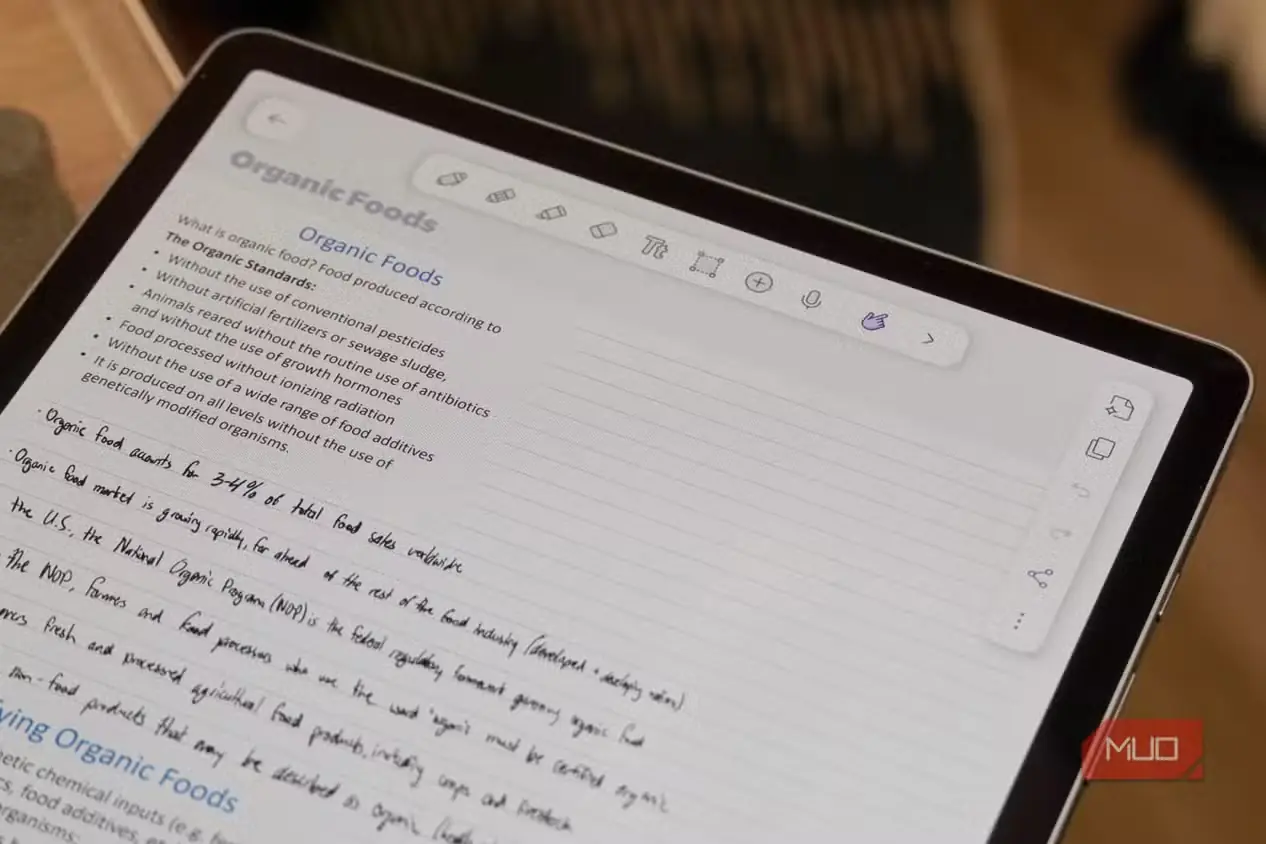 Organic Foods
Organic Foods
What is organic food? Food produced according to
The Organic Standards:
• Without the use of conventional pesticides
• Without artificial fertilizers or sewage sludge,
• Animals reared without the routine use of antibiotics
and without the use of growth hormones
• Food processed without ionizing radiation
• Without the use of a wide range of food additives
• It is produced on all levels without the use of
genetically modified organisms.
· Organic food accounts for 3-4% of total food sales worldwide
· Organic food market is growing rapidly, far ahead of the rest of the food industry (developed + developing nations)
the U.S., the National Organic Program (NOP) is the federal regulatory framework governing organic food
the NOP, farmers and food processors who use the word "organic" must be certified organic
fresh and processed agricultural food products, including crops and livestock
non-food products that may be described as organic
ying Organic Foods
etic chemical inputs (e.g.
food additives,
organisms:
Tt
MUO